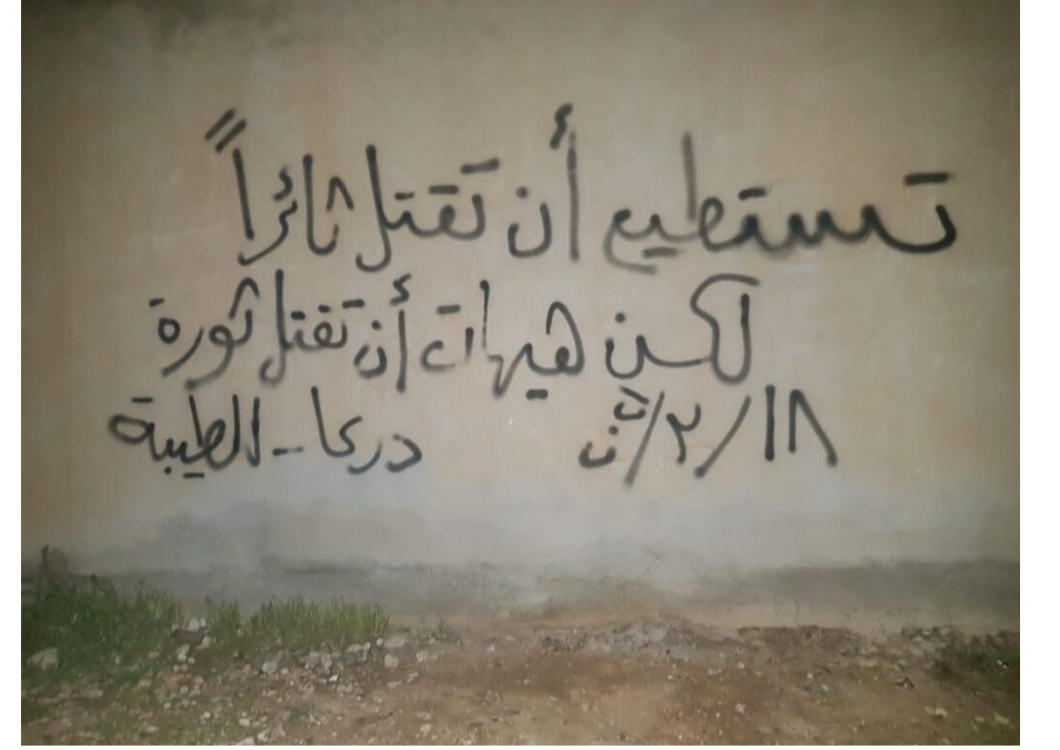 تستطيع أن تقتل ثائراً
لكن هيهات أن تقتل ثورة
١٨/٢/ثن درعا - الطيبة